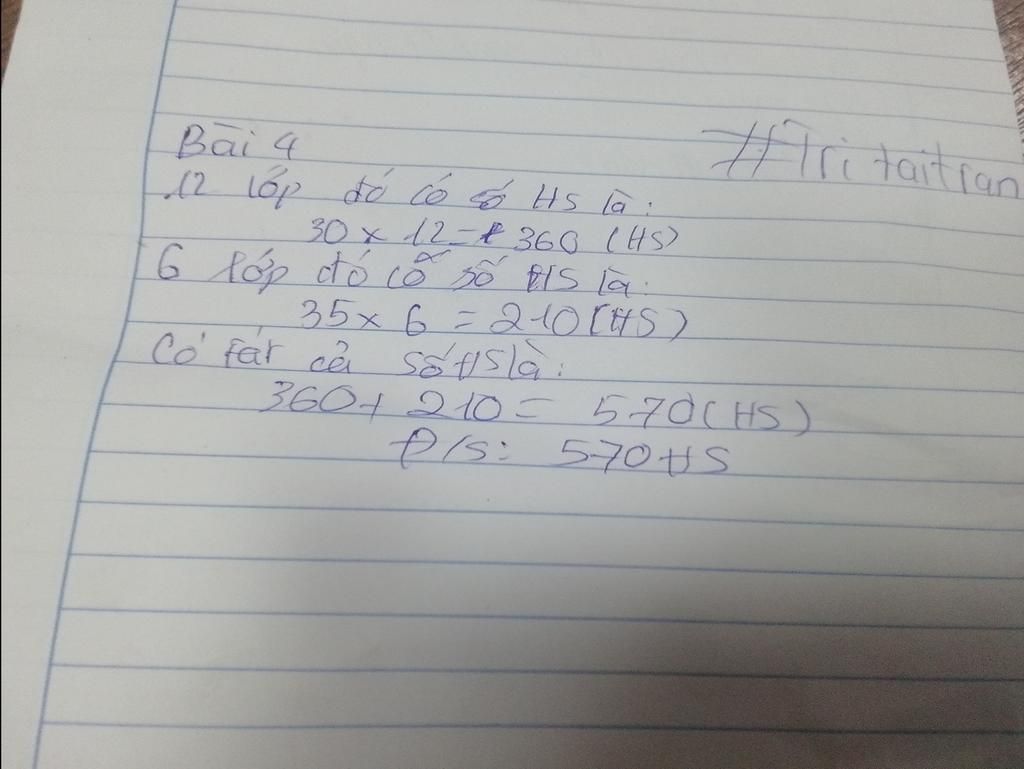 Bài 4
#Tri taitran
12 lớp đó có số HS là:
30 x 12 = 360 (HS)
6 lớp đó có số HS là:
35 x 6 = 210 (HS)
Có tất cả số HS là:
360 + 210 = 570 (HS)
Đ/S: 570 HS